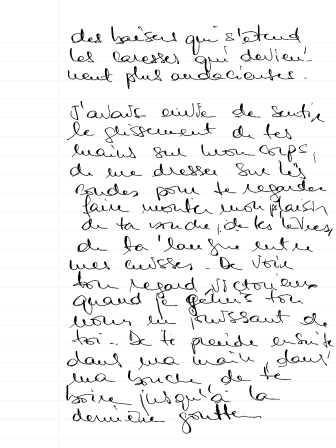 des baisers qui s'étend
les caresses qui devien-
nent plus audacieuses.
J'avais envie de sentir
le glissement de tes
mains sur mon corps,
de me dresser sur les
coudes pour te regarder
faire monter mon plaisir
de ta bouche, de tes lèvres,
de ta langue entre
mes cuisses. De voir
ton regard victorieux
quand je gémis ton
nom en jouissant de
toi. De te prendre ensuite
dans ma main, dans
ma bouche, de te
boire jusqu'à la
dernière goutte